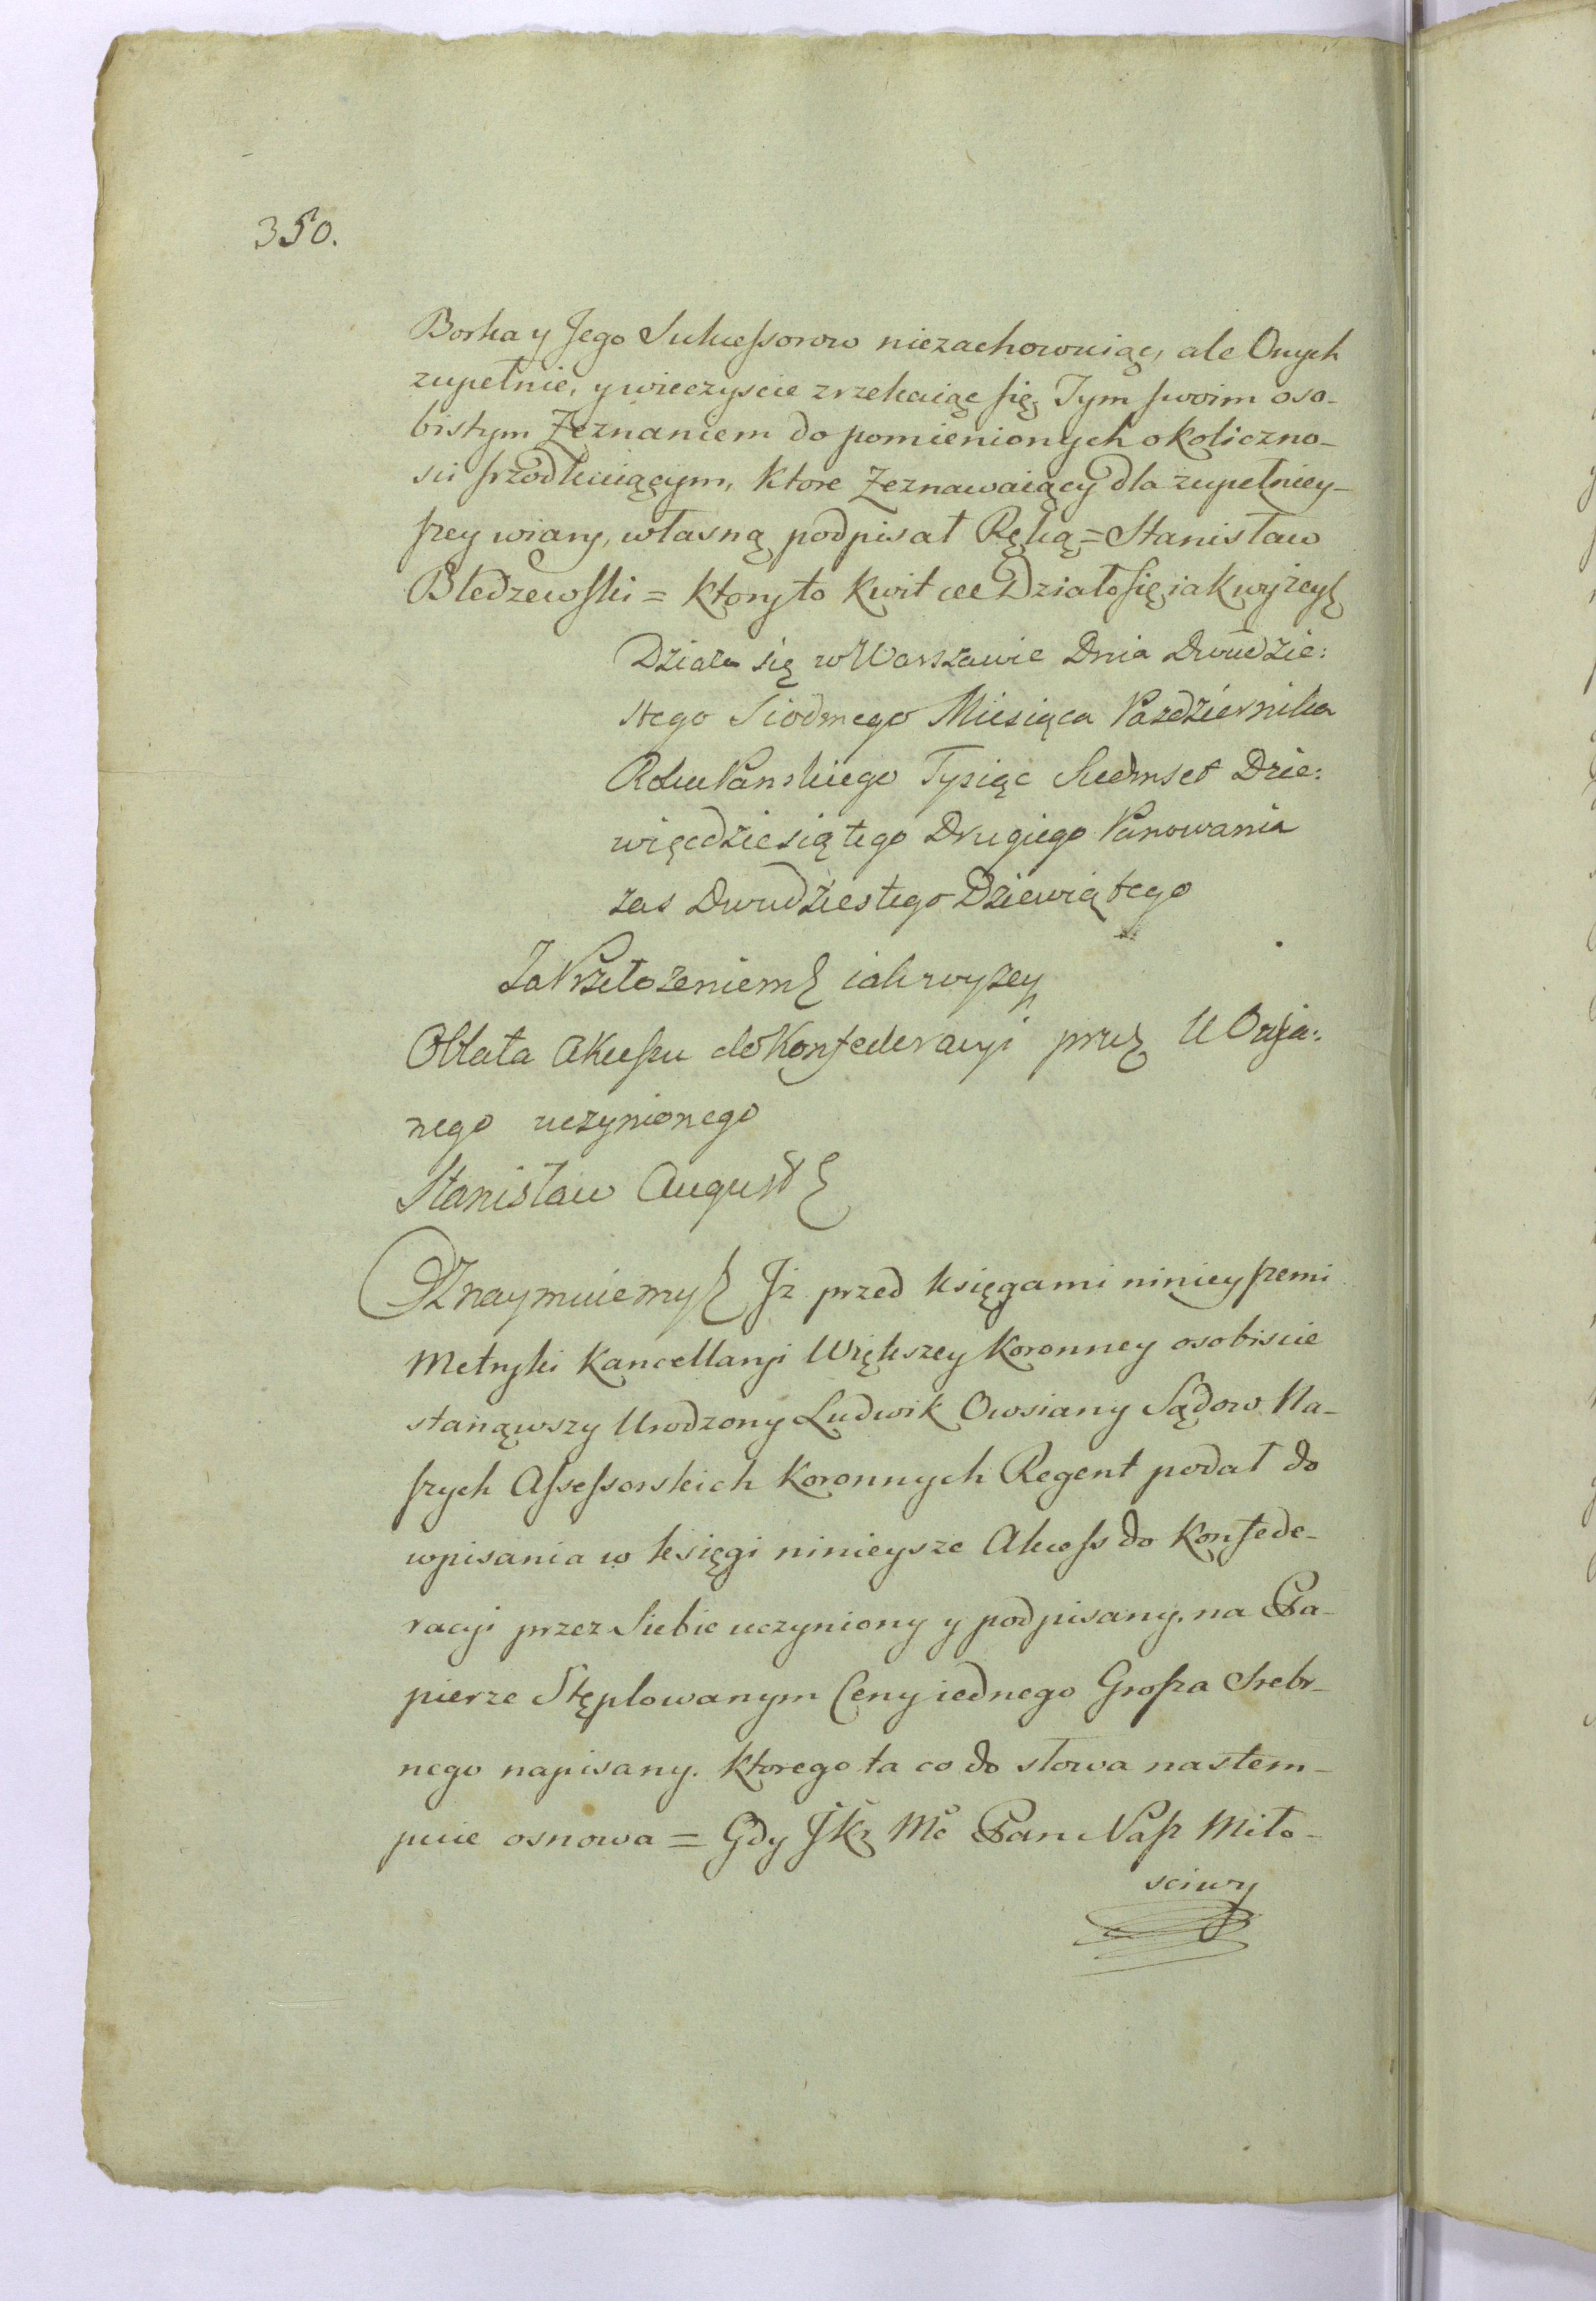 350.
Borka y Jego Sukcessorow niezachowuiąc, ale Onych
zupełnie, y wieczyscie zrzekaiąc się, Tym swoim oso-
bistym Zeznaniem do pomienionych okoliczno-
sci
ktore Zeznawaiący dla zupełniey-
szey wiary, własną podpisał Ręką = Stanisław
Bledzewski = ktory to Kwit &c Działo się iak wyżey
Działo się w Warszawie Dnia Dwudzie:
stego Siodmego Miesiąca Pazdziernika
Roku Panskiego Tysiąc Siedmset Dzie:
więcdziesiątego Drugiego Panowania
zas Dwudziestego Dziewiątego
Za Przełozeniem iak wyzey
Oblata Akcessu do Konfederacyi przez U Owsia:
nego uczynionego
Stanisław August
Oznaymuiemy Iż przed księgami ninieyszemi
Metryki Kancellaryi Większey Koronney osobiscie
stanąwszy Urodzony Ludwik Owsiany Sądow Na-
szych Assessorskich Koronnych Regent podał do
wpisania w księgi ninieysze Akcess do Konfede-
racyi przez Siebie uczyniony y podpisany, na Pa-
pierze Stęplowanym Ceny iednego Grosza Srebr-
nego napisany. Ktorego ta co do słowa nastem-
puie osnowa = Gdy JK Mć Pan Nasz Miło-
sciwy